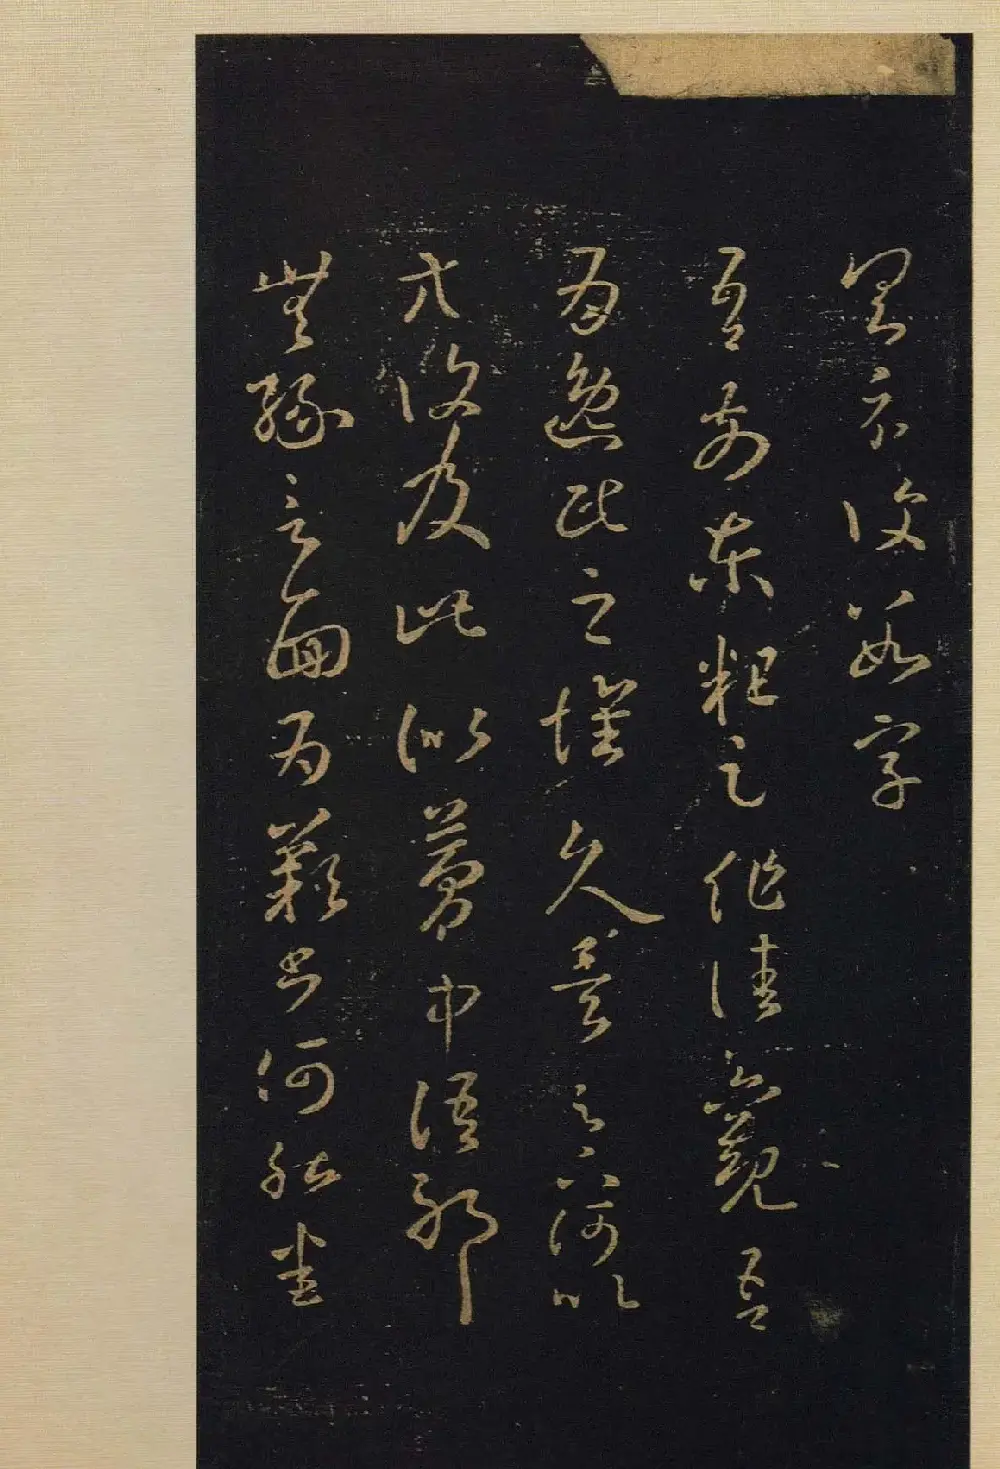 具示復數字
吾前東粗足作佳觀吾
為逸民之懷久矣足下何以
方復及此似夢中語耶
無緣言面為歎書何能悉